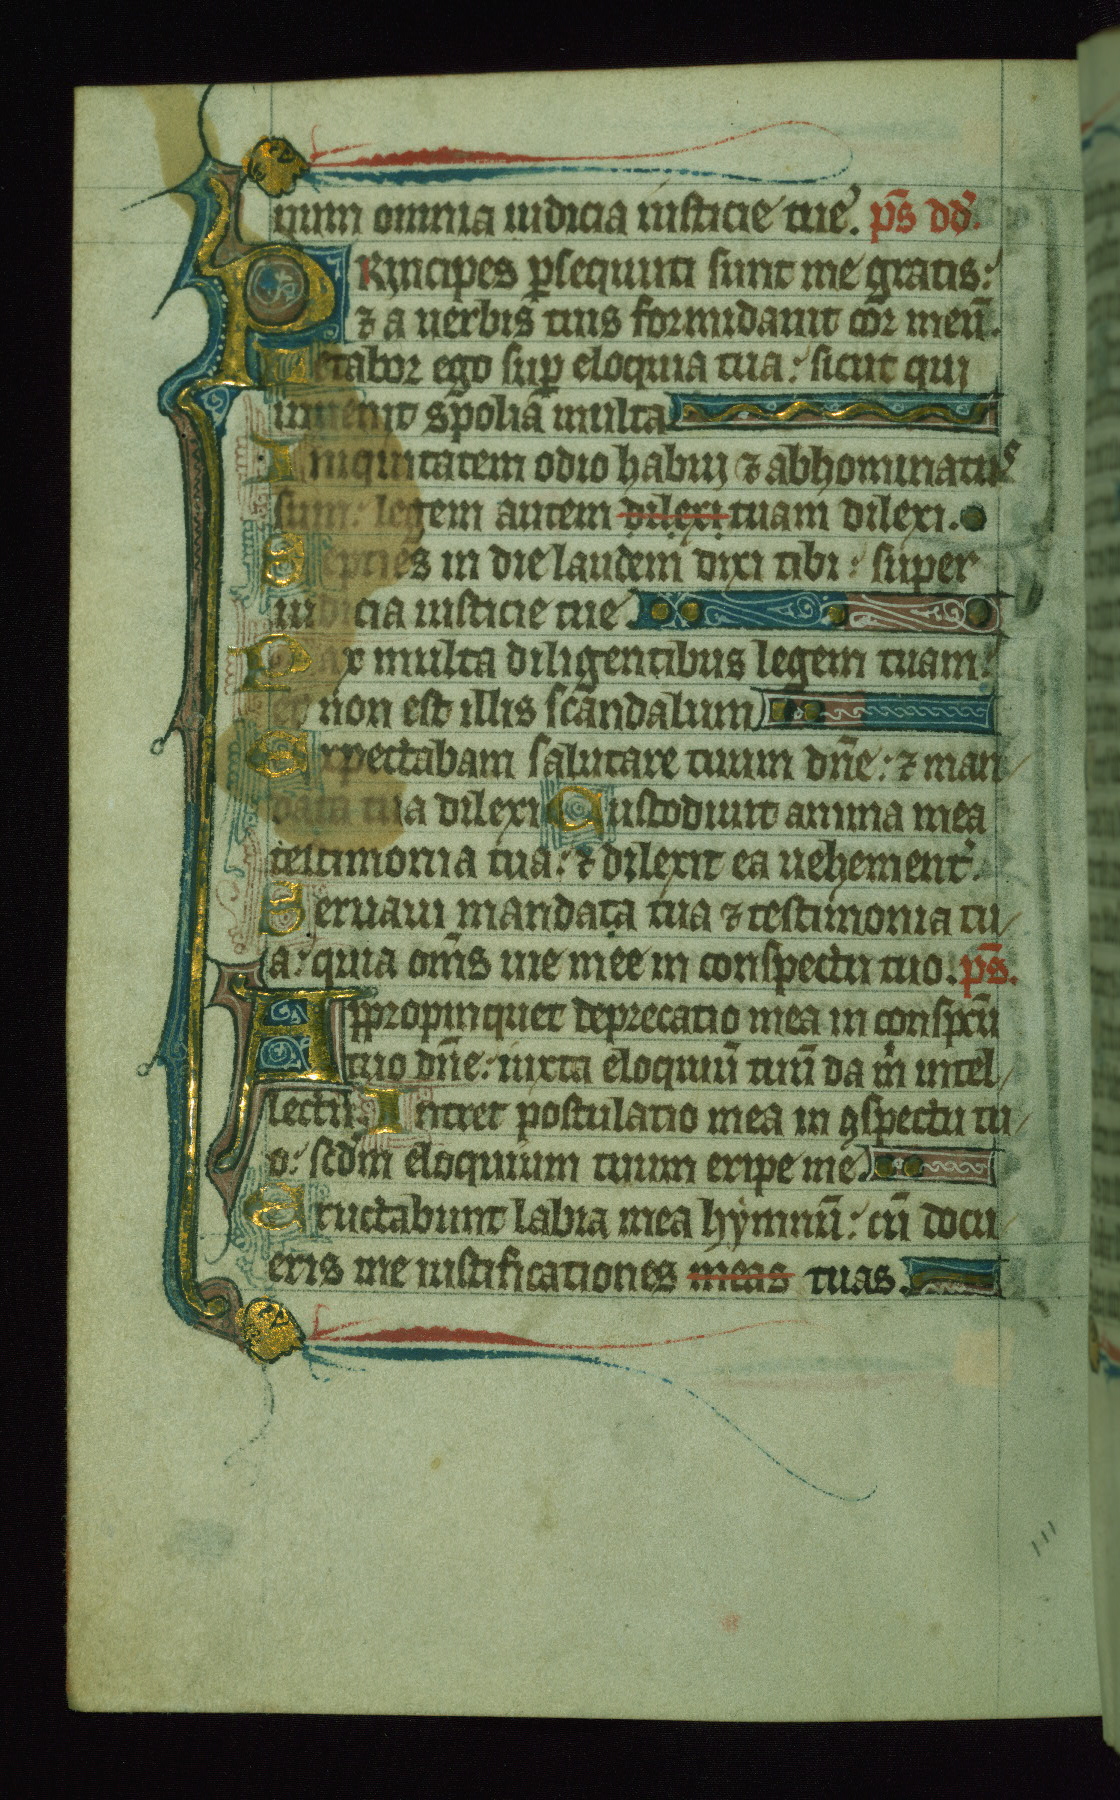 num omnia iudicia iusticie tue. ps dd.
PRincipes psequuti sunt me gratis:
⁊ a uerbis tuis formidauit cor meū.
Letabor ego sup eloquia tua: sicut qui
inuenit spolia multa
Iniquitatem odio habui ⁊ abhominatus
sum: legem autem dilexi tuam dilexi.
Septies in die laudem dixi tibi: super
iudicia iusticie tue
Pax multa diligentibus legem tuam:
et non est illis scandalum
Expectabam salutare tuum dn̄e: ⁊ man
data tua dilexi Custodiuit anima mea
testimonia tua: ⁊ dilexit ea uehement.
Seruaui mandata tua ⁊ testimonia tu
a: quia om̄s uie mee in conspectu tuo. ps.
Appropinquet deprecatio mea in conspcū
tuo dn̄e: iuxta eloquiū tuū da m intel
lectū. Intret postulatio mea in ꝯspectu tu
o: scdm eloquium tuum eripe me
Eructabunt labia mea hymnū: cū docu
eris me iustificationes meas tuas.
111